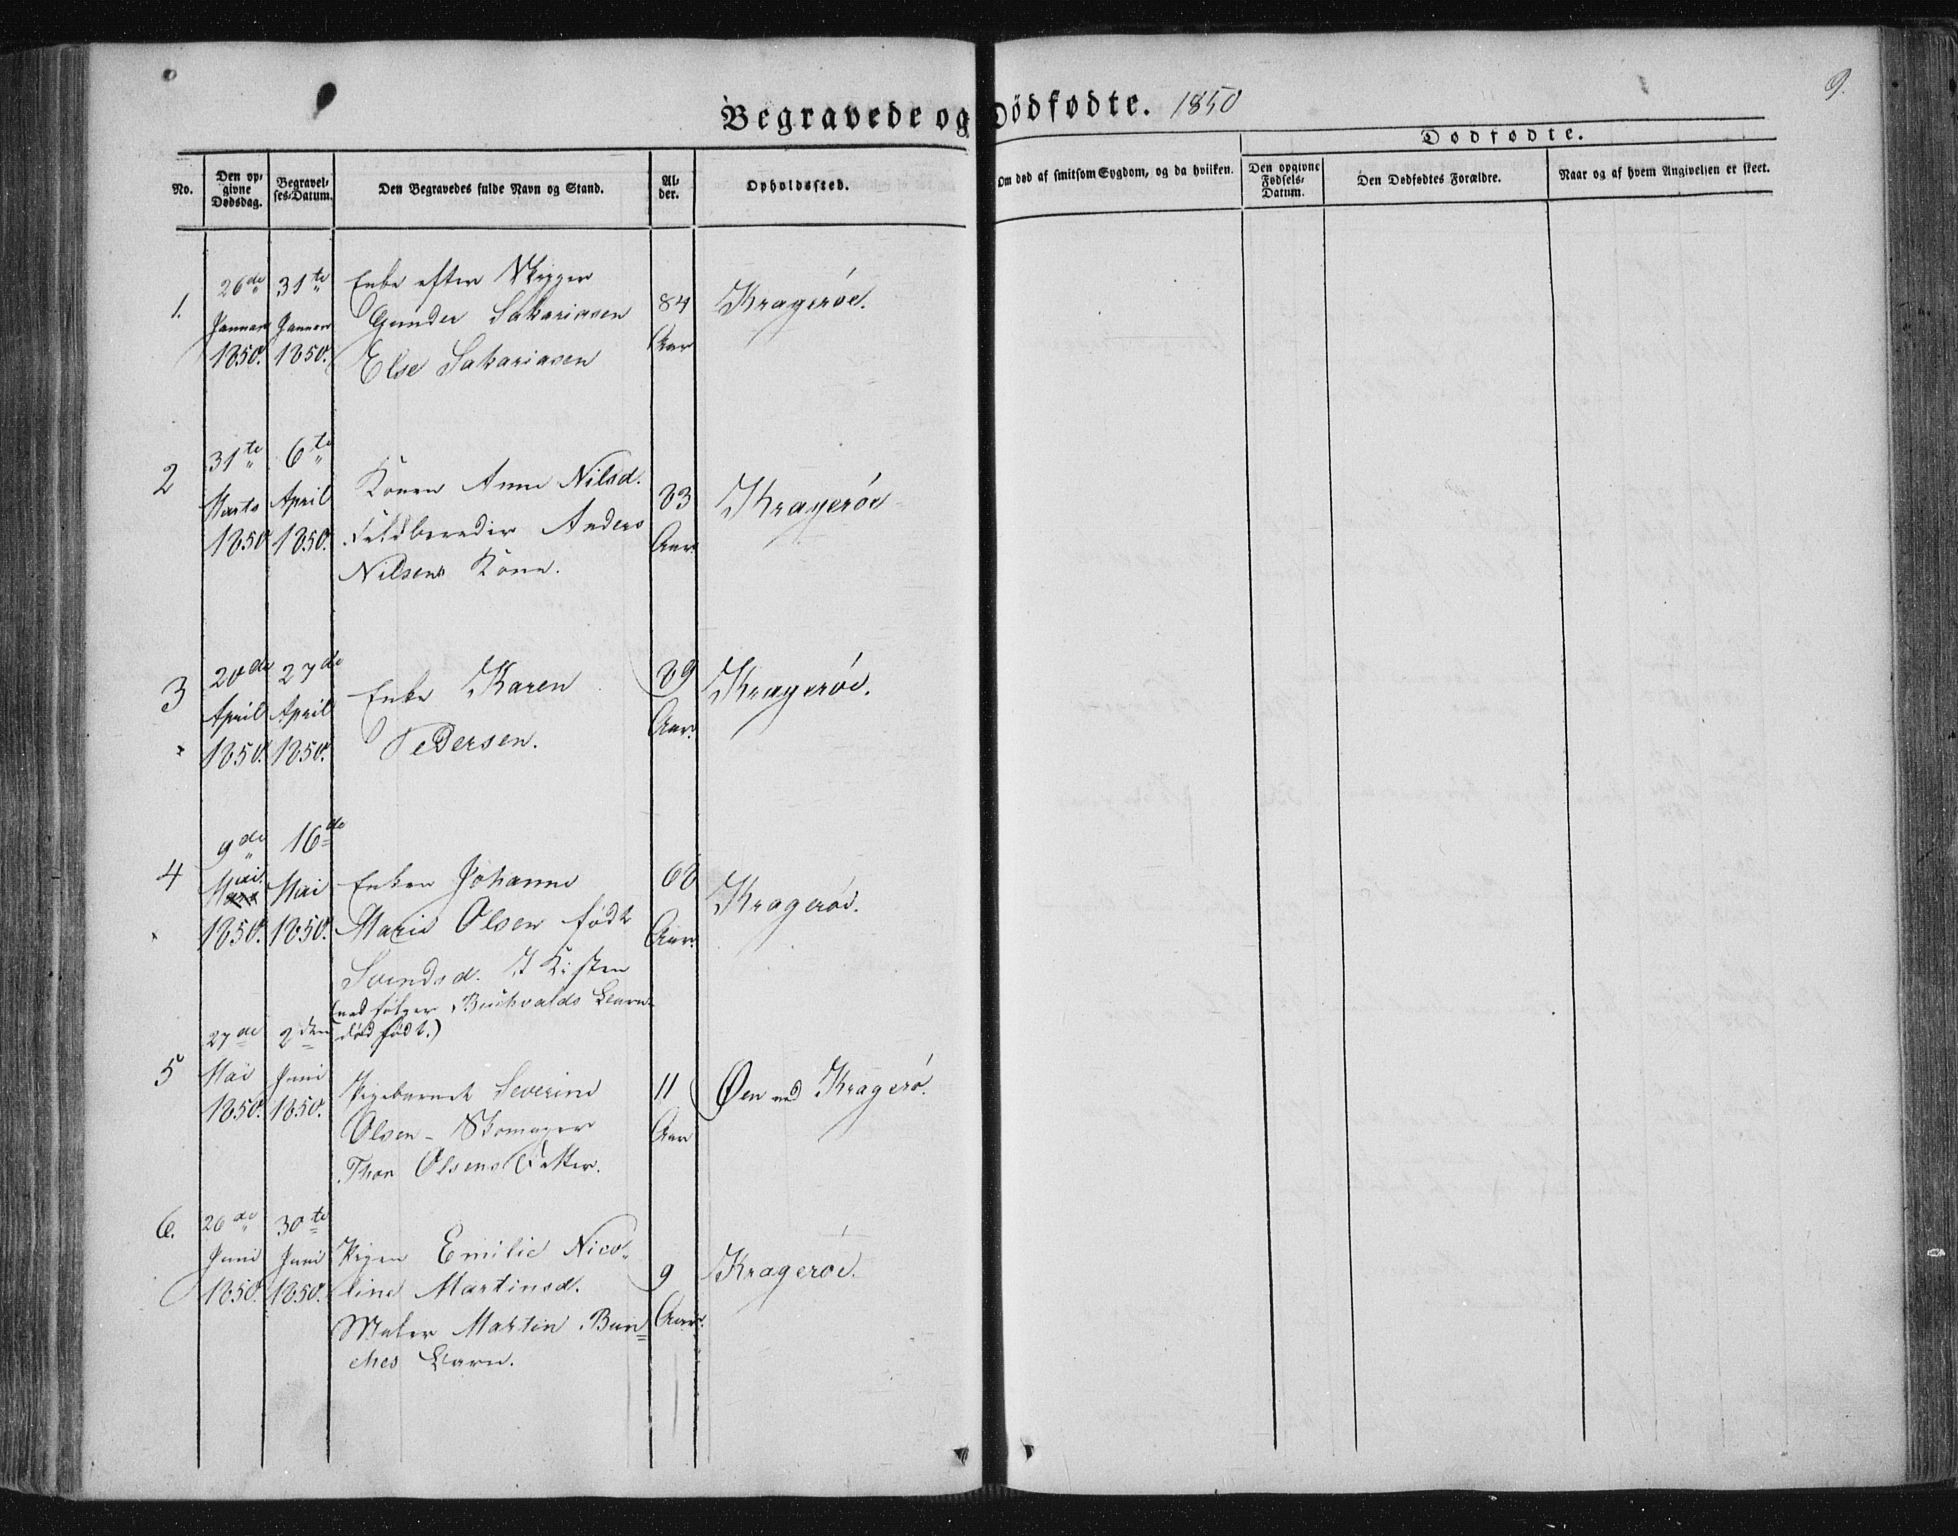 9.
Begravede og Dödfødte. 1850
No.
Den opgivne Dødsdag.
Begravelses-Datum.
Den Begravedes fulde Navn og Stand.
Alder.
Opholdssted.
Om død af smitsom Sygdom, og da hvilken.
Dødfødte.
Den opgivne Fødsels-Datum.
Den Dødfødtes Forældre.
Naar og af hvem Angivelsen er skeet.
1.
26de Januar 1850.
31te Januar 1850.
Enke efter Skipper
Gunder Sakariasen
Else Sakariasen
84 Aar
Kragerøe.
2
31te Marts 1850
6te April 1850.
Konen Anne Nilsd.
Feldbereder Anders
Nilsens Kone.
83 Aar.
Kragerøe
3
20de April 1850.
27de April 1850.
Enke Karen
Pedersen.
89 Aar.
Kragerøe.
4
9de Mai. 1850.
16de Mai 1850.
Enken Johanne
Marie Olsen født
Svendsd. I Kisten
(nedfølger Buchvalds Barn
dødfødt.)
68 Aar.
Kragerøe.
5
27de Mai 1850.
2den Juni 1850.
Pigebarnet Severine
Olsen - Skomager
Thor Olsens Datter.
11 Aar
Øen ved Kragerø.
6.
26de Juni 1850.
30te Juni 1850.
Pigen Emilie Nico-
line Martinsd.
Maler Martin Bun-
ches Barn.
9 Aar.
Kragerøe.